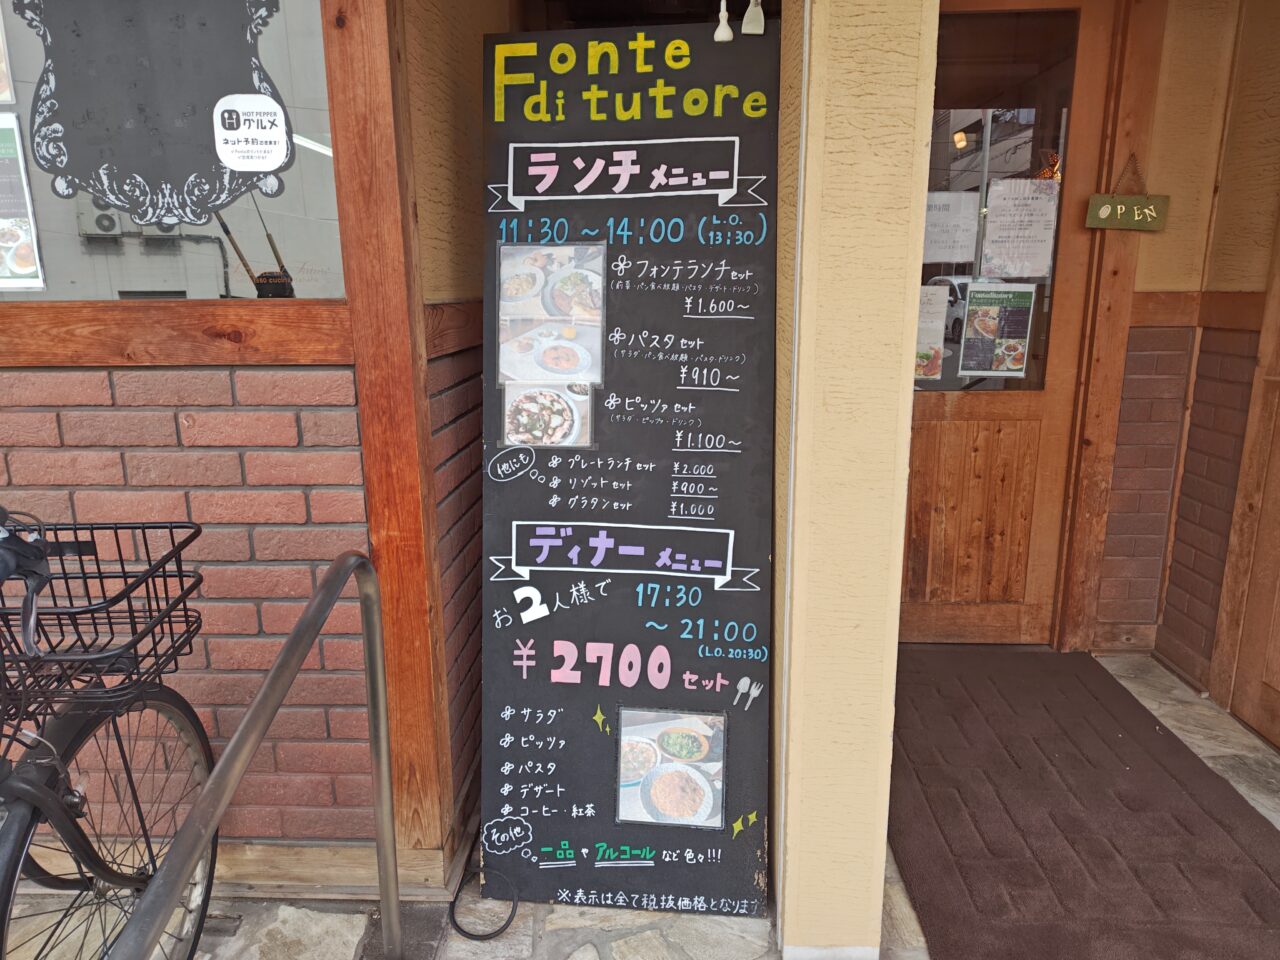 Fonte
di tutore
ランチ メニュー
11:30 ～ 14:00 (L.O. 13:30)
フォンテランチセット
(前菜・パン食べ放題・パスタ・デザート・ドリンク)
¥1.600～
パスタセット
(サラダ・パン食べ放題・パスタ・ドリンク)
¥910～
ピッツァセット
(サラダ・ピッツァ・ドリンク)
¥1.100～
他にも
プレートランチセット ¥2.000
リゾットセット ¥900～
グラタンセット ¥1.000
ディナー メニュー
お2人様で
17:30
～ 21:00
(L.O. 20:30)
¥2700 セット
サラダ
ピッツァ
パスタ
デザート
コーヒー・紅茶
その他
一品 や アルコール など 色々!!!
※表示は全て税抜価格となります
HOT PEPPER
グルメ
ネット予約
OPEN
Fonteditutore